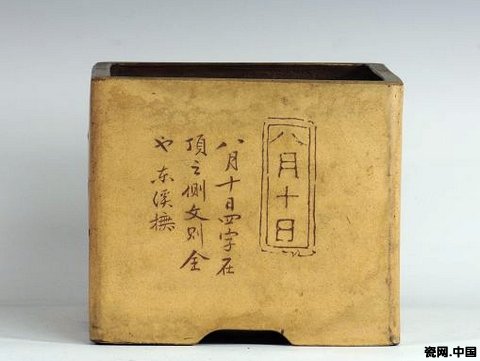 八月十日
八月十日四字在
頂之側文則全
也 东溪橅
瓷网.中国